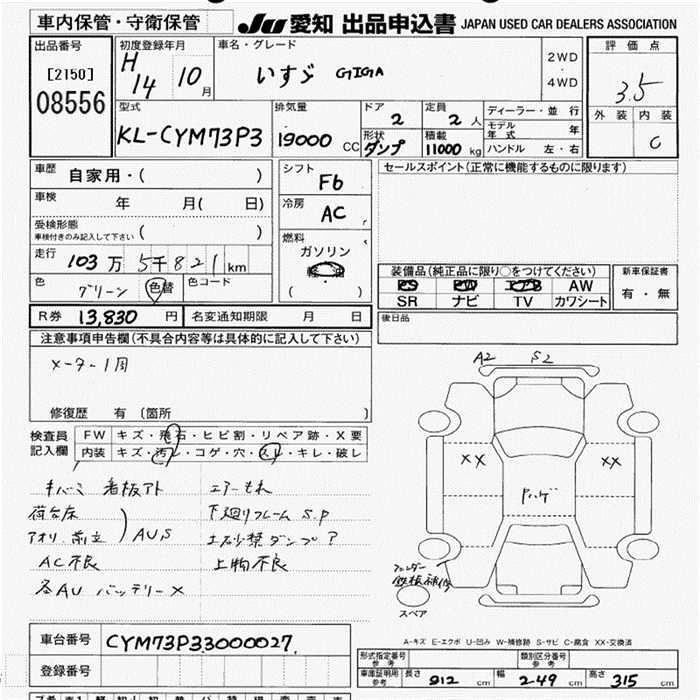 車内保管・守衛保管
JU 愛知 出品申込書 JAPAN USED CAR DEALERS ASSOCIATION
出品番号
[2150]
08556
初度登録年月
H 14 10 月
車名・グレード
いすゞ GIGA
2WD
・
4WD
評価点
3.5
外装 内装
C
型式
KL-CYM73P3
排気量
19000 CC
ドア
2
定員
2 人
形状
ダンプ
積載
11000 kg
ディーラー・並行
モデル年式 年
ハンドル 左・右
車歴
自家用・( )
車検 年 月( 日)
受検形態
車検付きのみ記入して下さい ( )
走行
103 万 5千821 km
色
グリーン 色替 色コード
シフト
F6
冷房
AC
燃料
ガソリン
( )
セールスポイント(正常に機能するものに限ります)
装備品(純正品に限り○をつけてください)
PS PW エアB AW
SR ナビ TV カワシート
新車保証書
有・無
R券 13,830 円 名変通知期限 月 日
後日品
注意事項申告欄(不具合内容等は具体的に記入して下さい)
メーター1周
修復歴 有 (箇所 )
検査員
記入欄
FW キズ・飛石・ヒビ割・リペア跡・X要
内装 キズ・汚れ・コゲ・穴・スレ・キレ・破レ
キバミ 看板アト
荷台床
アオリ 鳥立 AUS
AC不良
各AU バッテリーX
エアーもれ
下廻りフレーム S.P
土砂禁ダンプ?
上物不良
A2 S2
XX
XX
ハゲ
フェンダー
鉄板補修
スペア
A-キズ E-エクボ U-凹み W-補修跡 S-サビ C-腐食 XX-交換済
車台番号 CYM73P33000027
登録番号
形式指定番号
参考
類別区分番号
参考
車庫証明用
参考
長さ 812 cm 幅 249 cm 高さ 315 cm